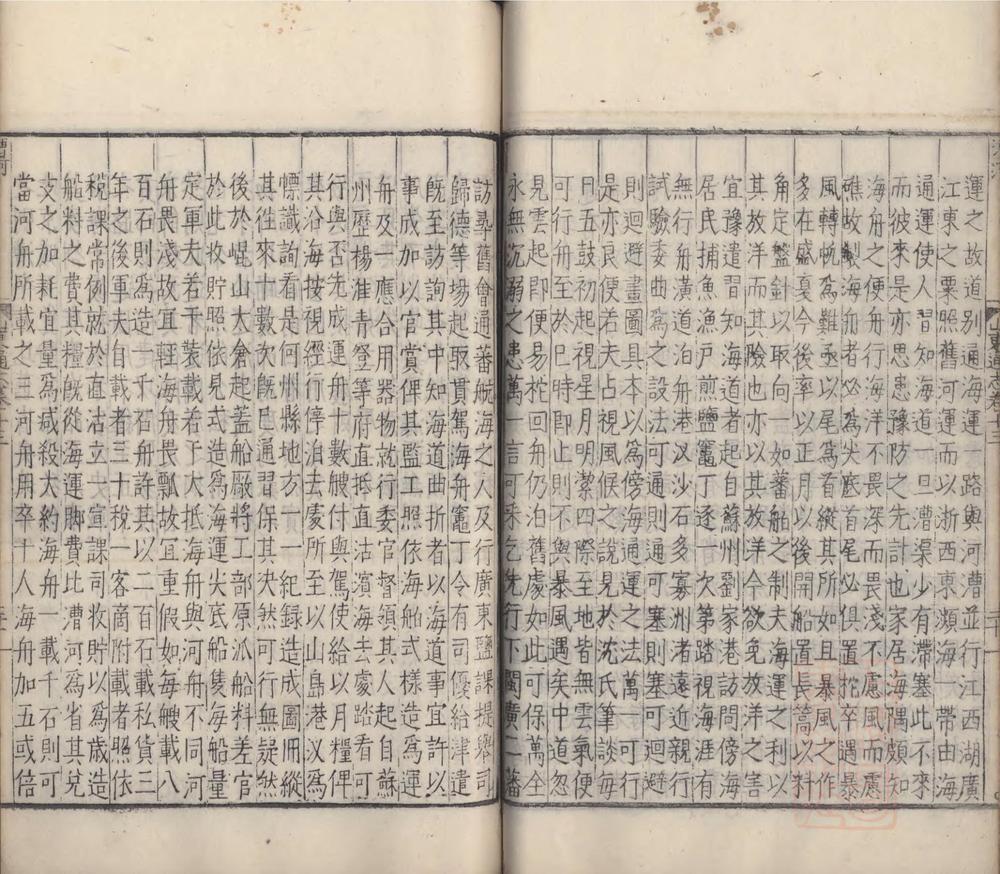 運之故道別通海運一路與河漕並行江西湖廣
江東之粟照舊河運而以浙西東瀕海一帶由海
通運使人習知海道一旦漕渠少有滯塞此不來
而彼來是亦思患豫防之先計也家居海隅頗知
海舟之便舟行海洋不畏深而畏淺不慮風而慮
礁故製海舟者必為尖底首尾必俱置柁卒遇暴
風轉帆為難亟以尾為首縱其所如且暴風之作
多在盛夏今後率以正月以後開船置長篙以料
角定盤針以取向一如蕃舶之制夫海運之利以
其放洋而其險也亦以其放洋今欲免放洋之害
宜豫遣習知海道者起自蘇州劉家港訪問傍海
居民捕魚漁戶煎鹽竈丁逐一次第踏視海涯有
無行舟潢道泊舟港汊沙石多寡洲渚遠近親行
試驗委曲為之設法可通則通可塞則塞可迴避
則迴避畫圖具本以為傍海通運之法萬一可行
是亦良便若夫占視風候之說見於沈氏筆談每
月五鼓初起視星月明潔四際至地皆無雲氣便
可行舟至於巳時即止則不與暴風遇矣中道忽
見雲起即便易柁回舟仍泊舊處如此可保萬全
永無沉溺之患萬一言可采乞先行下閩廣二藩
訪尋舊會通蕃航海之人及行廣東鹽課提舉司
歸德等場起取貫駕海舟竈丁令有司優給津遣
既至訪詢其中知海道曲折者以海道事宜許以
事成加以官賞俾其監工照依海舶式樣造為運
舟及一應合用器物就行委官督領其人起自蘇
州歷楊淮青登等府直抵直沽濱海去處踏看可
行與否先成運舟十數艘付與駕使給以月糧俾
其沿海按視經行停泊去處所至以山島港汊為
慓識詢看是何州縣地方一一紀録造成圖冊縱
其徃來十數次既巳通習保其决然可行無疑然
後於崐山太倉起蓋船廠將工部原派船料差官
於此收貯照依見式造為海運尖底船隻每船量
定軍夫若干裝載若干大抵海舟與河舟不同河
舟畏淺故宜輕海舟畏飄故冝重假如每艘載八
百石則為造一千石舟許其以二百石載私貨三
年之後軍夫自載者三十稅一客商附載者照依
稅課常例就於直沽立一宣課司收貯以為歲造
船料之費其糧既從海運脚費比漕河為省其兌
支之加耗宜量為減殺大約海舟一載千石則可
當河舟所載之三河舟用卒十人海舟加五或倍